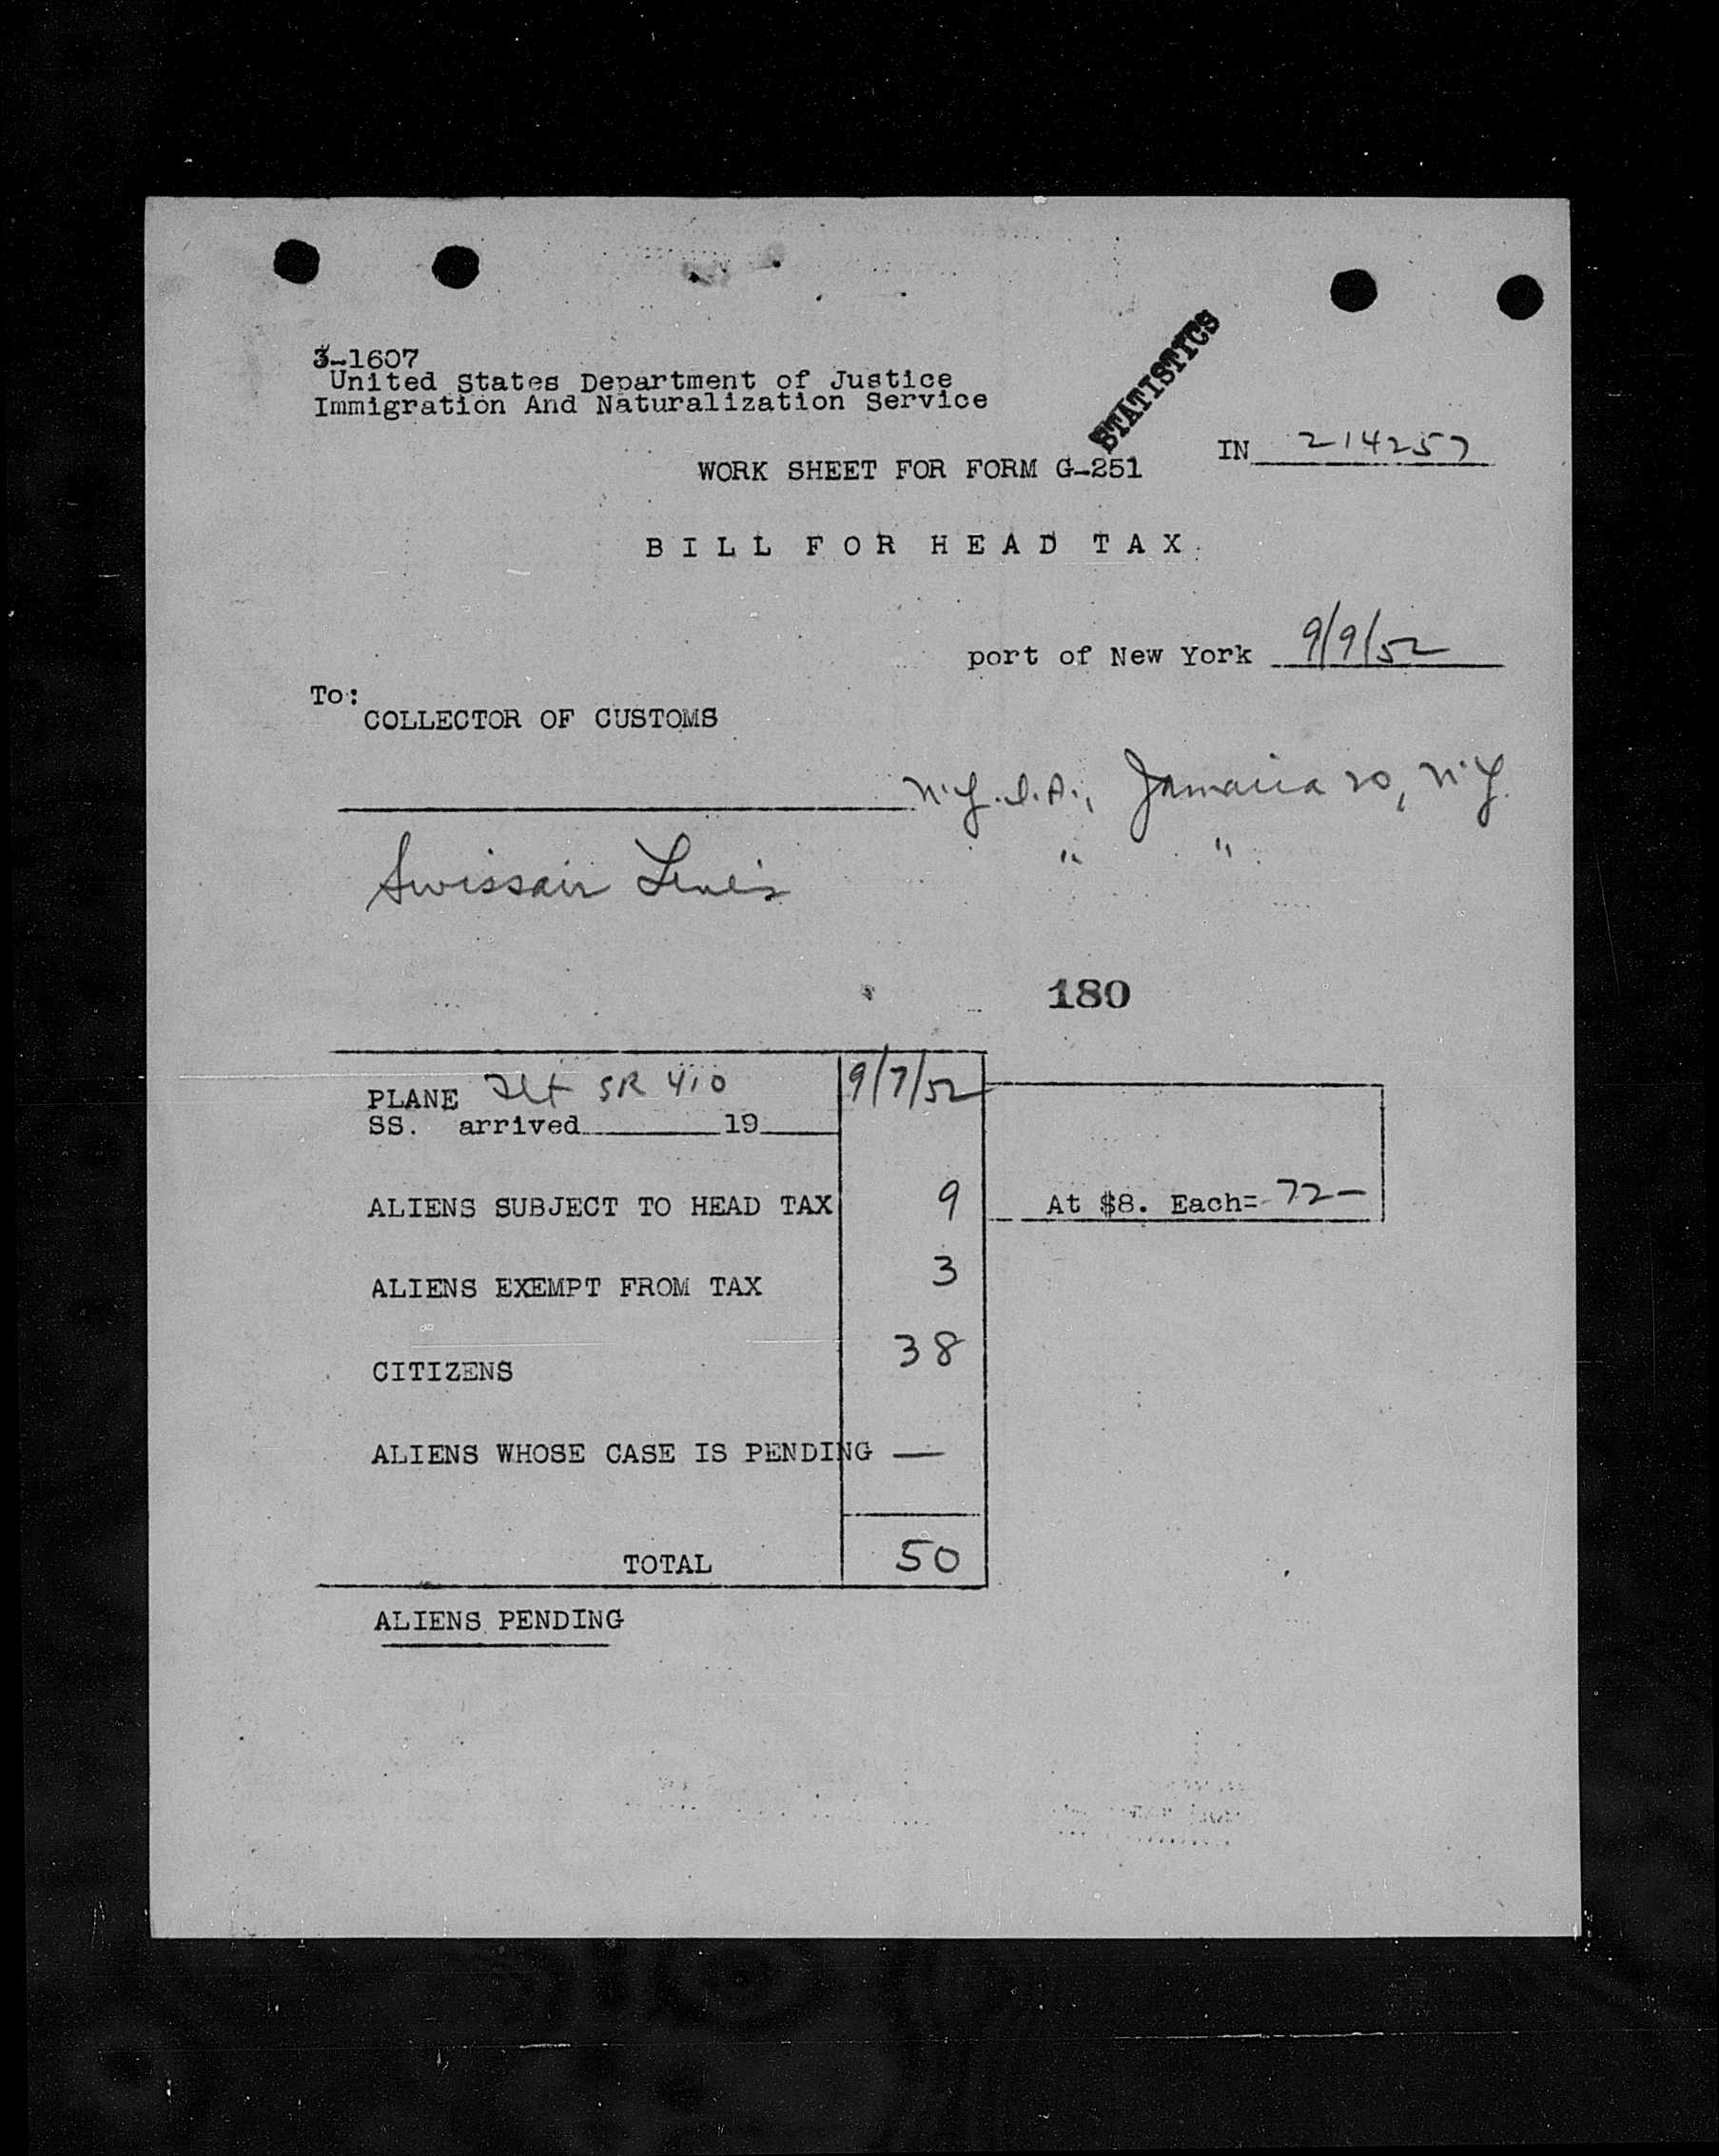 3-1607
United States Department of Justice
Immigration And Naturalization Service
STATISTICS
IN 214257
WORK SHEET FOR FORM G-251
BILL FOR HEAD TAX
port of New York 9/9/52
To:
COLLECTOR OF CUSTOMS
N.Y.I.A., Jamaica 20, N.Y.
Swissair Lines " "
180
PLANE Flt SR 410 9/7/52
SS. arrived 19
ALIENS SUBJECT TO HEAD TAX 9 At $8. Each= 72-
ALIENS EXEMPT FROM TAX 3
CITIZENS 38
ALIENS WHOSE CASE IS PENDING —
TOTAL 50
ALIENS PENDING